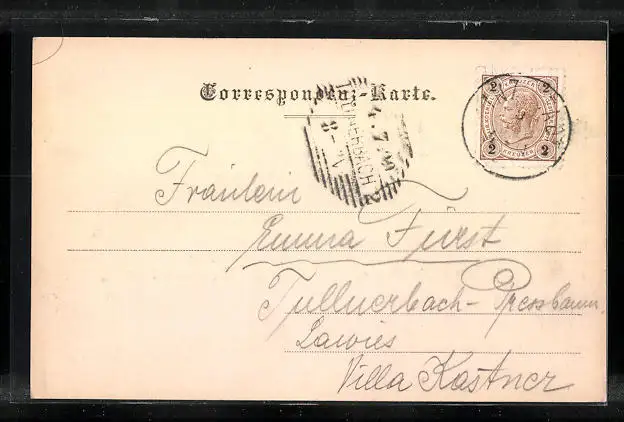 Correspondenz-Karte.
2 2
KREUZER
2 2
TULLNERBACH
4. 7. 00
8-
Fräulein
Emma Fürst
Tullnerbach-Pressbaum
Lawies
Villa Kastner